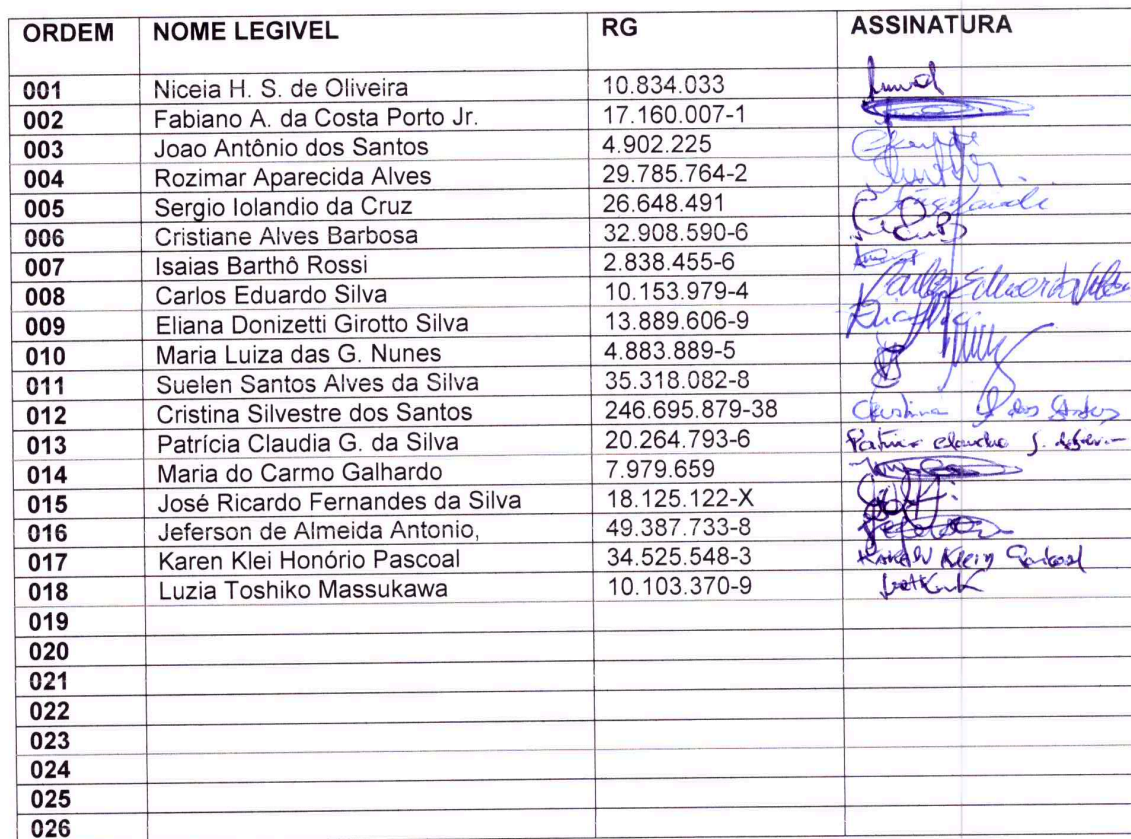 ORDEM NOME LEGIVEL RG ASSINATURA
001 Niceia H. S. de Oliveira 10.834.033
002 Fabiano A. da Costa Porto Jr. 17.160.007-1
003 Joao Antônio dos Santos 4.902.225
004 Rozimar Aparecida Alves 29.785.764-2
005 Sergio Iolandio da Cruz 26.648.491
006 Cristiane Alves Barbosa 32.908.590-6
007 Isaias Barthô Rossi 2.838.455-6
008 Carlos Eduardo Silva 10.153.979-4 Carlos Eduardo Silva
009 Eliana Donizetti Girotto Silva 13.889.606-9
010 Maria Luiza das G. Nunes 4.883.889-5
011 Suelen Santos Alves da Silva 35.318.082-8
012 Cristina Silvestre dos Santos 246.695.879-38 Cristina S dos Santos
013 Patrícia Claudia G. da Silva 20.264.793-6 Patricia Claudia G. da Silva
014 Maria do Carmo Galhardo 7.979.659
015 José Ricardo Fernandes da Silva 18.125.122-X
016 Jeferson de Almeida Antonio, 49.387.733-8
017 Karen Klei Honório Pascoal 34.525.548-3
018 Luzia Toshiko Massukawa 10.103.370-9
019
020
021
022
023
024
025
026